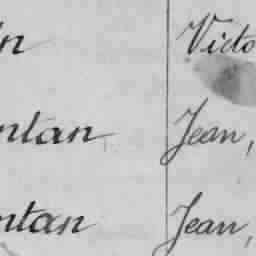 in Victo
ntan Jean,
ntan Jean,